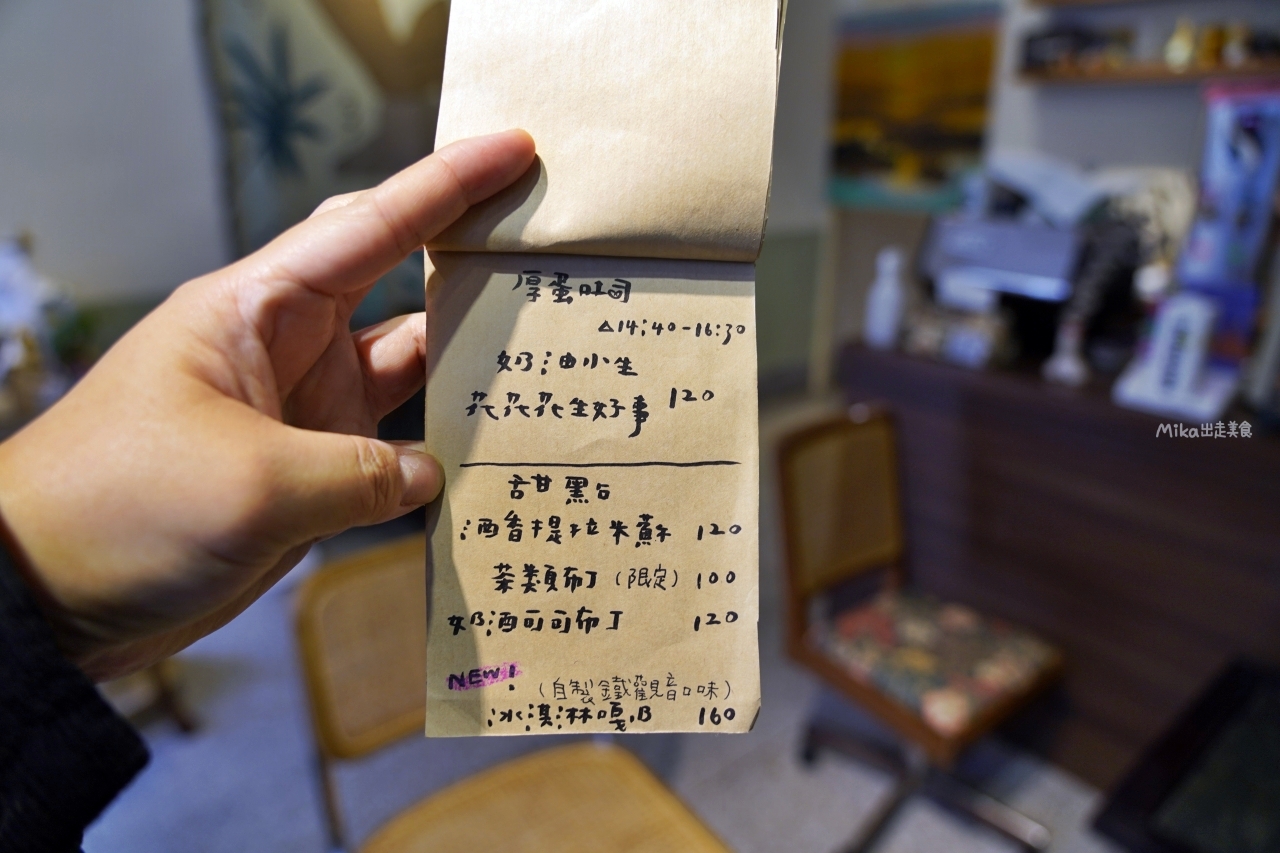 厚蛋吐司
△14:40-16:30
奶油小生
花花花生好事 120
甜點
酒香提拉米蘇 120
茶類布丁（限定） 100
奶酒可可布丁 120
NEW!
（自製鐵觀音口味）
冰淇淋嘎逼 160
Mika出走美食